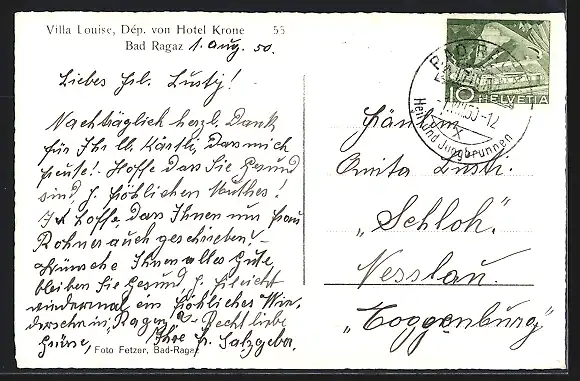 Villa Louise, Dép. von Hotel Krone 55
Bad Ragaz 1. Aug. 50.
Liebes Frl. Lusty!
Nachträglich herzl. Dank
für Ihr lb. Kärtli, das mich
freute! Hoffe das Sie Gesund
sind, fröhlichen Muthes!
Hoffe, das Ihnen nun Frau
Rohner auch geschrieben! –
Wünsche Ihnen alles Gute,
bleiben Sie Gesund,
wiedermal ein fröhliches Wie-
dersehn in Ragaz! – Recht liebe
Grüsse, Ihre fr. Salzgeber.
Foto Fetzer, Bad-Ragaz
10 HELVETIA
BAD RAGAZ
50-12
Heil und Jungbrunnen
Fräulein
Anita Lusti.
„Schloh."
Nesslau.
„Toggenburg"